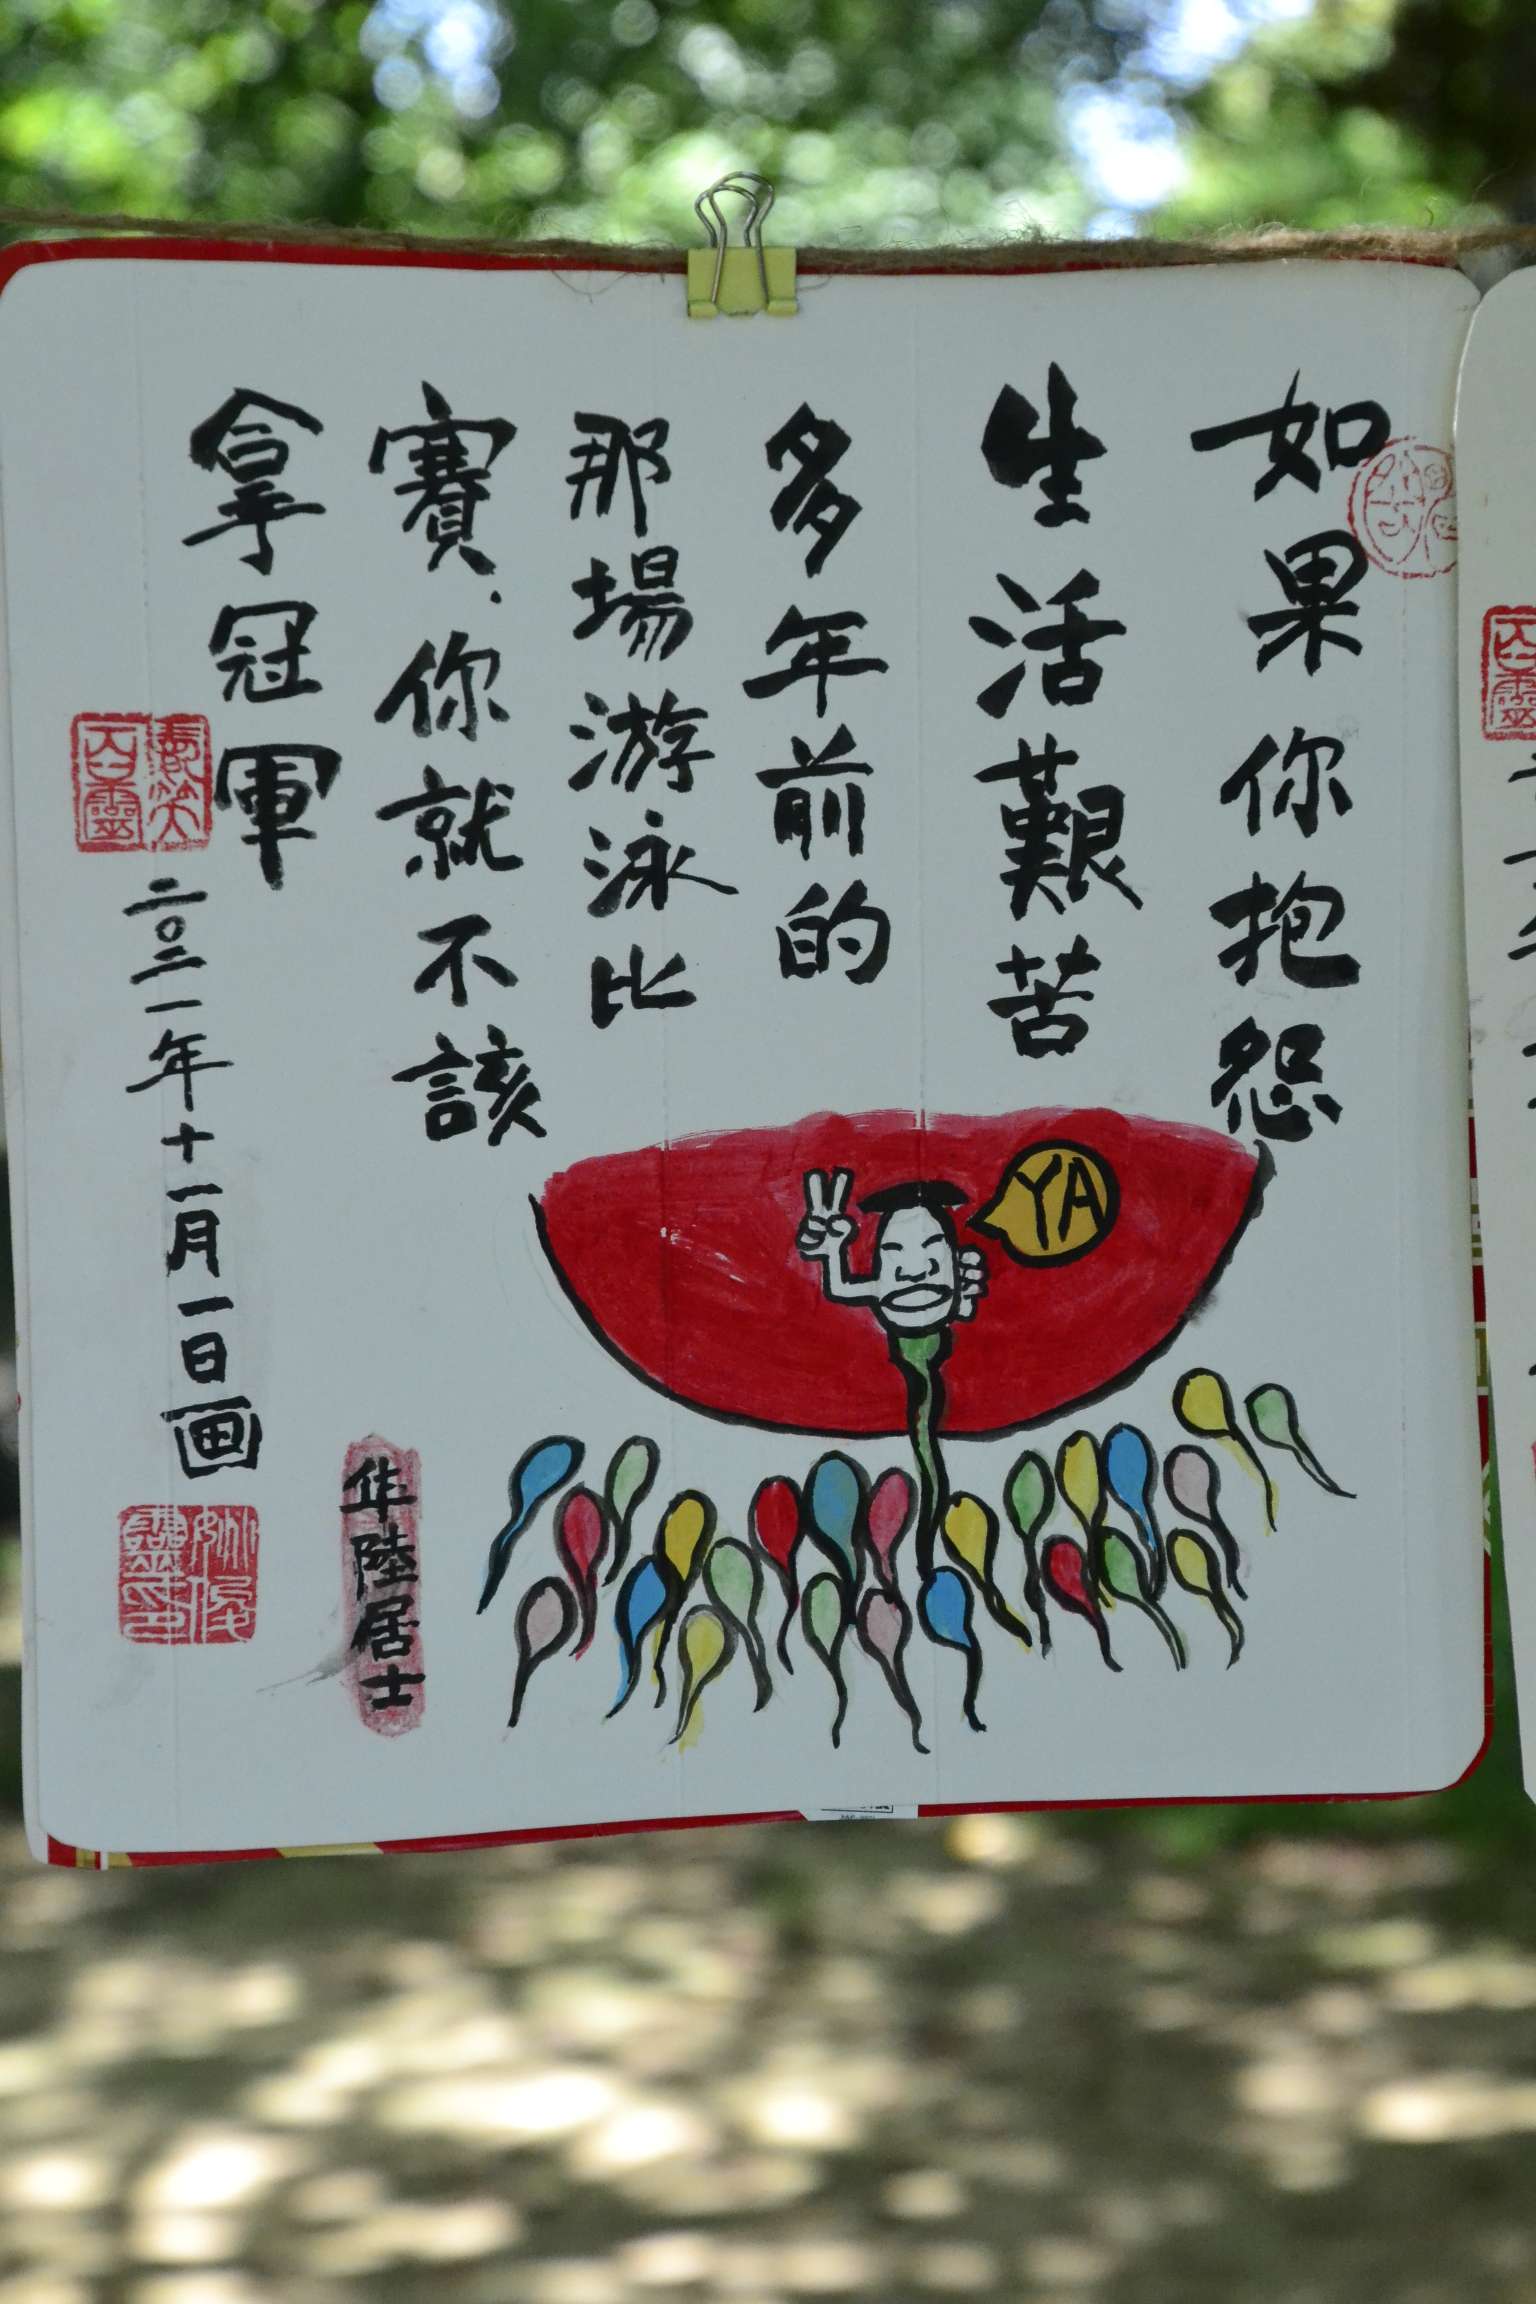 如果你抱怨
生活艱苦
多年前的
那場游泳比
賽．你就不該
拿冠軍
二〇二一年十一月一日画
隼陸居士
YA